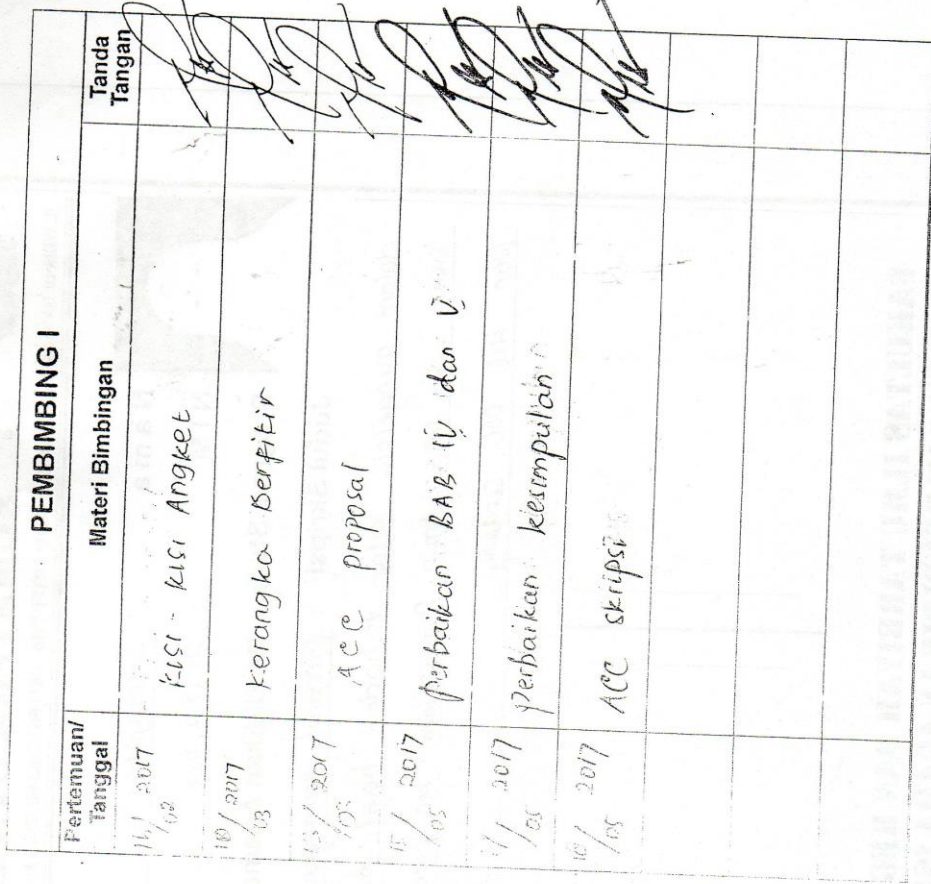 PEMBIMBING I
Pertemuan/ Tanggal
Materi Bimbingan
Tanda Tangan
2017
Kisi - Kisi Angket
10/03 2017
Kerangka Berfikir
2017
ACC proposal
/05 2017
perbaikan BAB IV dan V
/05 2017
perbaikan kesimpulan
/05 2017
ACC skripsi